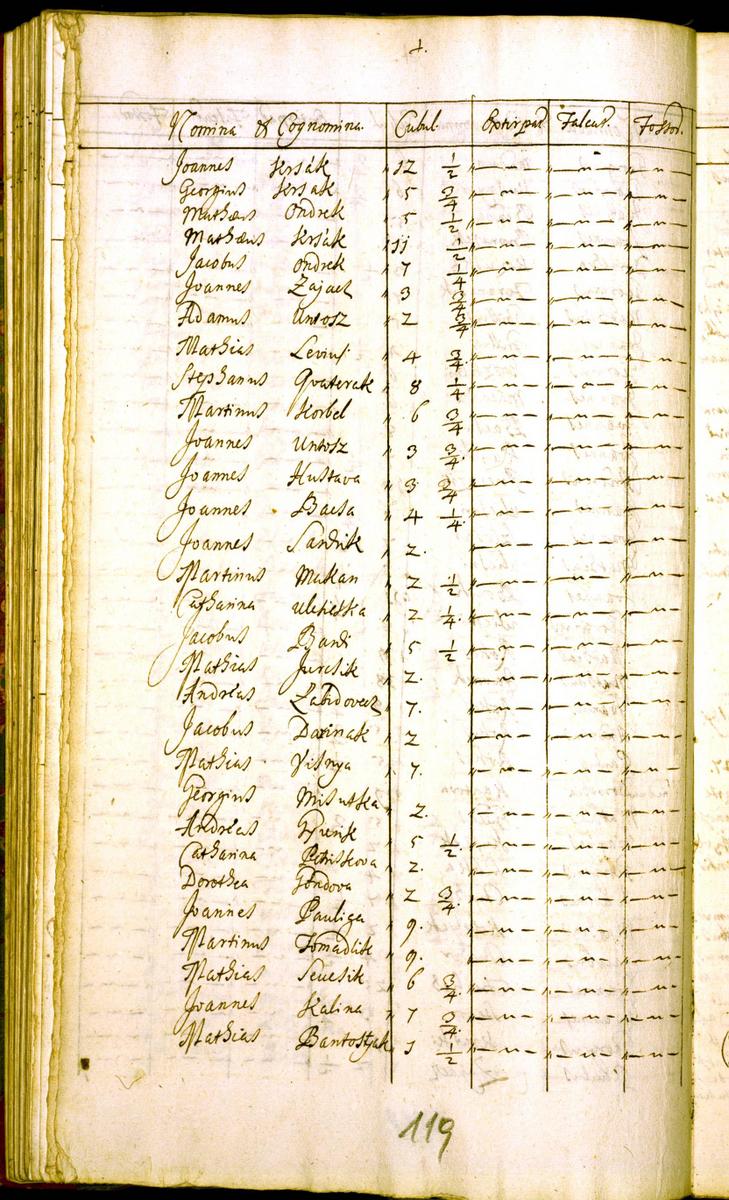 Nomina & Cognomina. Cubul. Extirpat. Falcat. Fossor.
Joannes Krsák " 12 1/2 "—"— "—"— "—"—
Georgius Krsak " 5 3/4 "—"— "—"— "—"—
Mathæus Ondrek " 5 1/2 "—"— "—"— "—"—
Mathæus Krsák " 11 1/2 "—"— "—"— "—"—
Jacobus Ondrek " 7 1/4 "—"— "—"— "—"—
Joannes Zajacz " 3 3/4 "—"— "—"— "—"—
Adamus Untosz " 2 3/4 "—"— "—"— "—"—
Mathias " 4 3/4 "—"— "—"— "—"—
Stephanus Qvaterak " 8 1/4 "—"— "—"— "—"—
Martinus Korbel " 6 3/4 "—"— "—"— "—"—
Joannes Untosz " 3 3/4 "—"— "—"— "—"—
Joannes Hustava " 3 3/4 "—"— "—"— "—"—
Joannes Bacsa " 4 1/4 "—"— "—"— "—"—
Joannes Sandrik " 2. "—"— "—"— "—"—
Martinus Makan " 2 1/2 "—"— "—"— "—"—
Catharina " 2 1/4. "—"— "—"— "—"—
Jacobus Bandi " 5 1/2 "—"— "—"— "—"—
Mathias Jurcsik " 2. "—"— "—"— "—"—
Andreas Labidovecz " 7. "—"— "—"— "—"—
Jacobus " 2 "—"— "—"— "—"—
Mathias Visnya " 7. "—"— "—"— "—"—
Georgius Misutska " 2. "—"— "—"— "—"—
Andreas " 5 1/2 "—"— "—"— "—"—
Catharina Petriskova " 2. "—"— "—"— "—"—
Dorothea Gondova " 2 3/4 "—"— "—"— "—"—
Joannes Pauliga " 9. "—"— "—"— "—"—
Martinus Tomadlik " 9. "—"— "—"— "—"—
Mathias Sevcsik " 6 3/4 "—"— "—"— "—"—
Joannes Kalina " 7 3/4 "—"— "—"— "—"—
Mathias Bantostjak " 1 1/2 "—"— "—"— "—"—
119